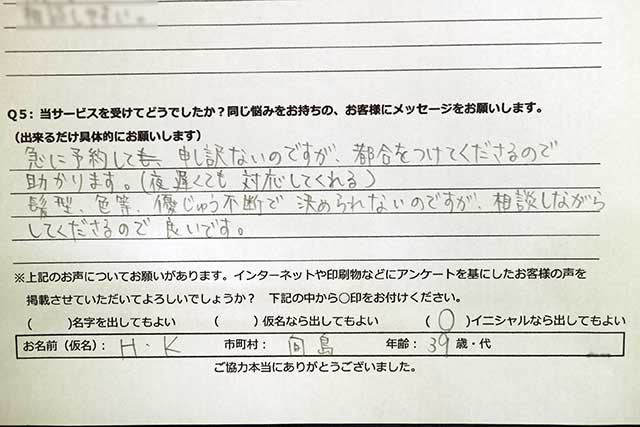 Q5：当サービスを受けてどうでしたか？同じ悩みをお持ちの、お客様にメッセージをお願いします。
(出来るだけ具体的にお願いします)
急に予約しても、申し訳ないのですが、都合をつけてくださるので
助かります。(夜遅くても対応してくれる)
髪型、色等、優じゅう不断で決められないのですが、相談しながら
してくださるので良いです。
※上記のお声についてお願いがあります。インターネットや印刷物などにアンケートを基にしたお客様の声を
掲載させていただいてよろしいでしょうか？ 下記の中から○印をお付けください。
( )名字を出してもよい ( )仮名なら出してもよい (○)イニシャルなら出してもよい
お名前（仮名）： H・K 市町村： 向島 年齢： 39 歳・代
ご協力本当にありがとうございました。